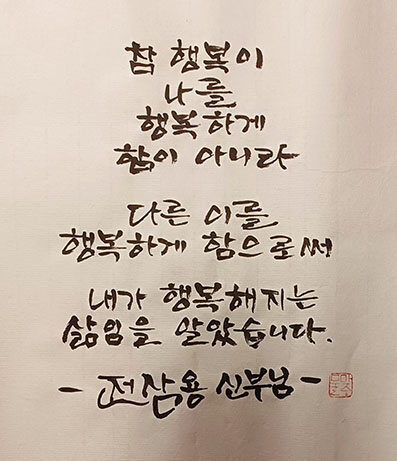 참 행복이
나를
행복하게
함이 아니라
다른 이를
행복하게 함으로써
내가 행복해지는
삶임을 알았습니다.
- 전삼용 신부님 -